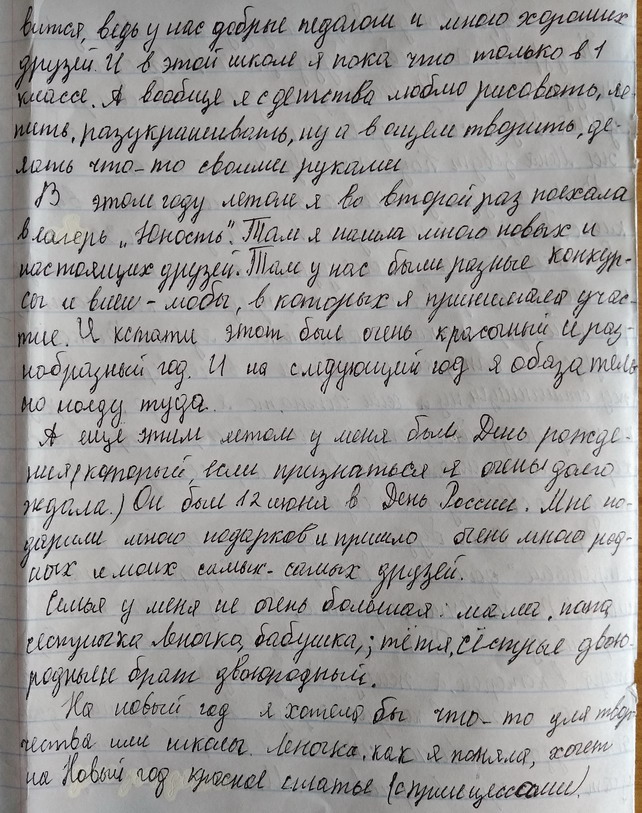 вится, ведь у нас добрые педагоги и много хороших
друзей. И в этой школе я пока что только в 1
классе. А вообще я с детства люблю рисовать, ле-
пить, разукрашивать, ну а в общем творить, де-
лать что-то своими руками
В этом году летом я во второй раз поехала
в лагерь „Юность". Там я нашла много новых и
настоящих друзей. Там у нас были разные конкур-
сы и влеш-мобы, в которых я принимала учас-
тие. И кстати этот был очень красочный и раз-
нобразный год. И на следующий год я обазатель
но поеду туда.
А еще этим летом у меня был День рожде-
ния (который, если признаться я очень долго
ждала.) Он был 12 июня в День России. Мне по-
дарили много подарков и пришло очень много род-
ных и моих самых-самых друзей.
Семья у меня не очень большая: мама, папа
сестрычка Леночка, бабушка,; тётя, сёстрые двою-
родные и брат двоюродный.
На новый год я хотела бы что-то для твор-
чества или школы. Леночка, как я поняла, хочет
на Новый год красное платье (с принцессами).